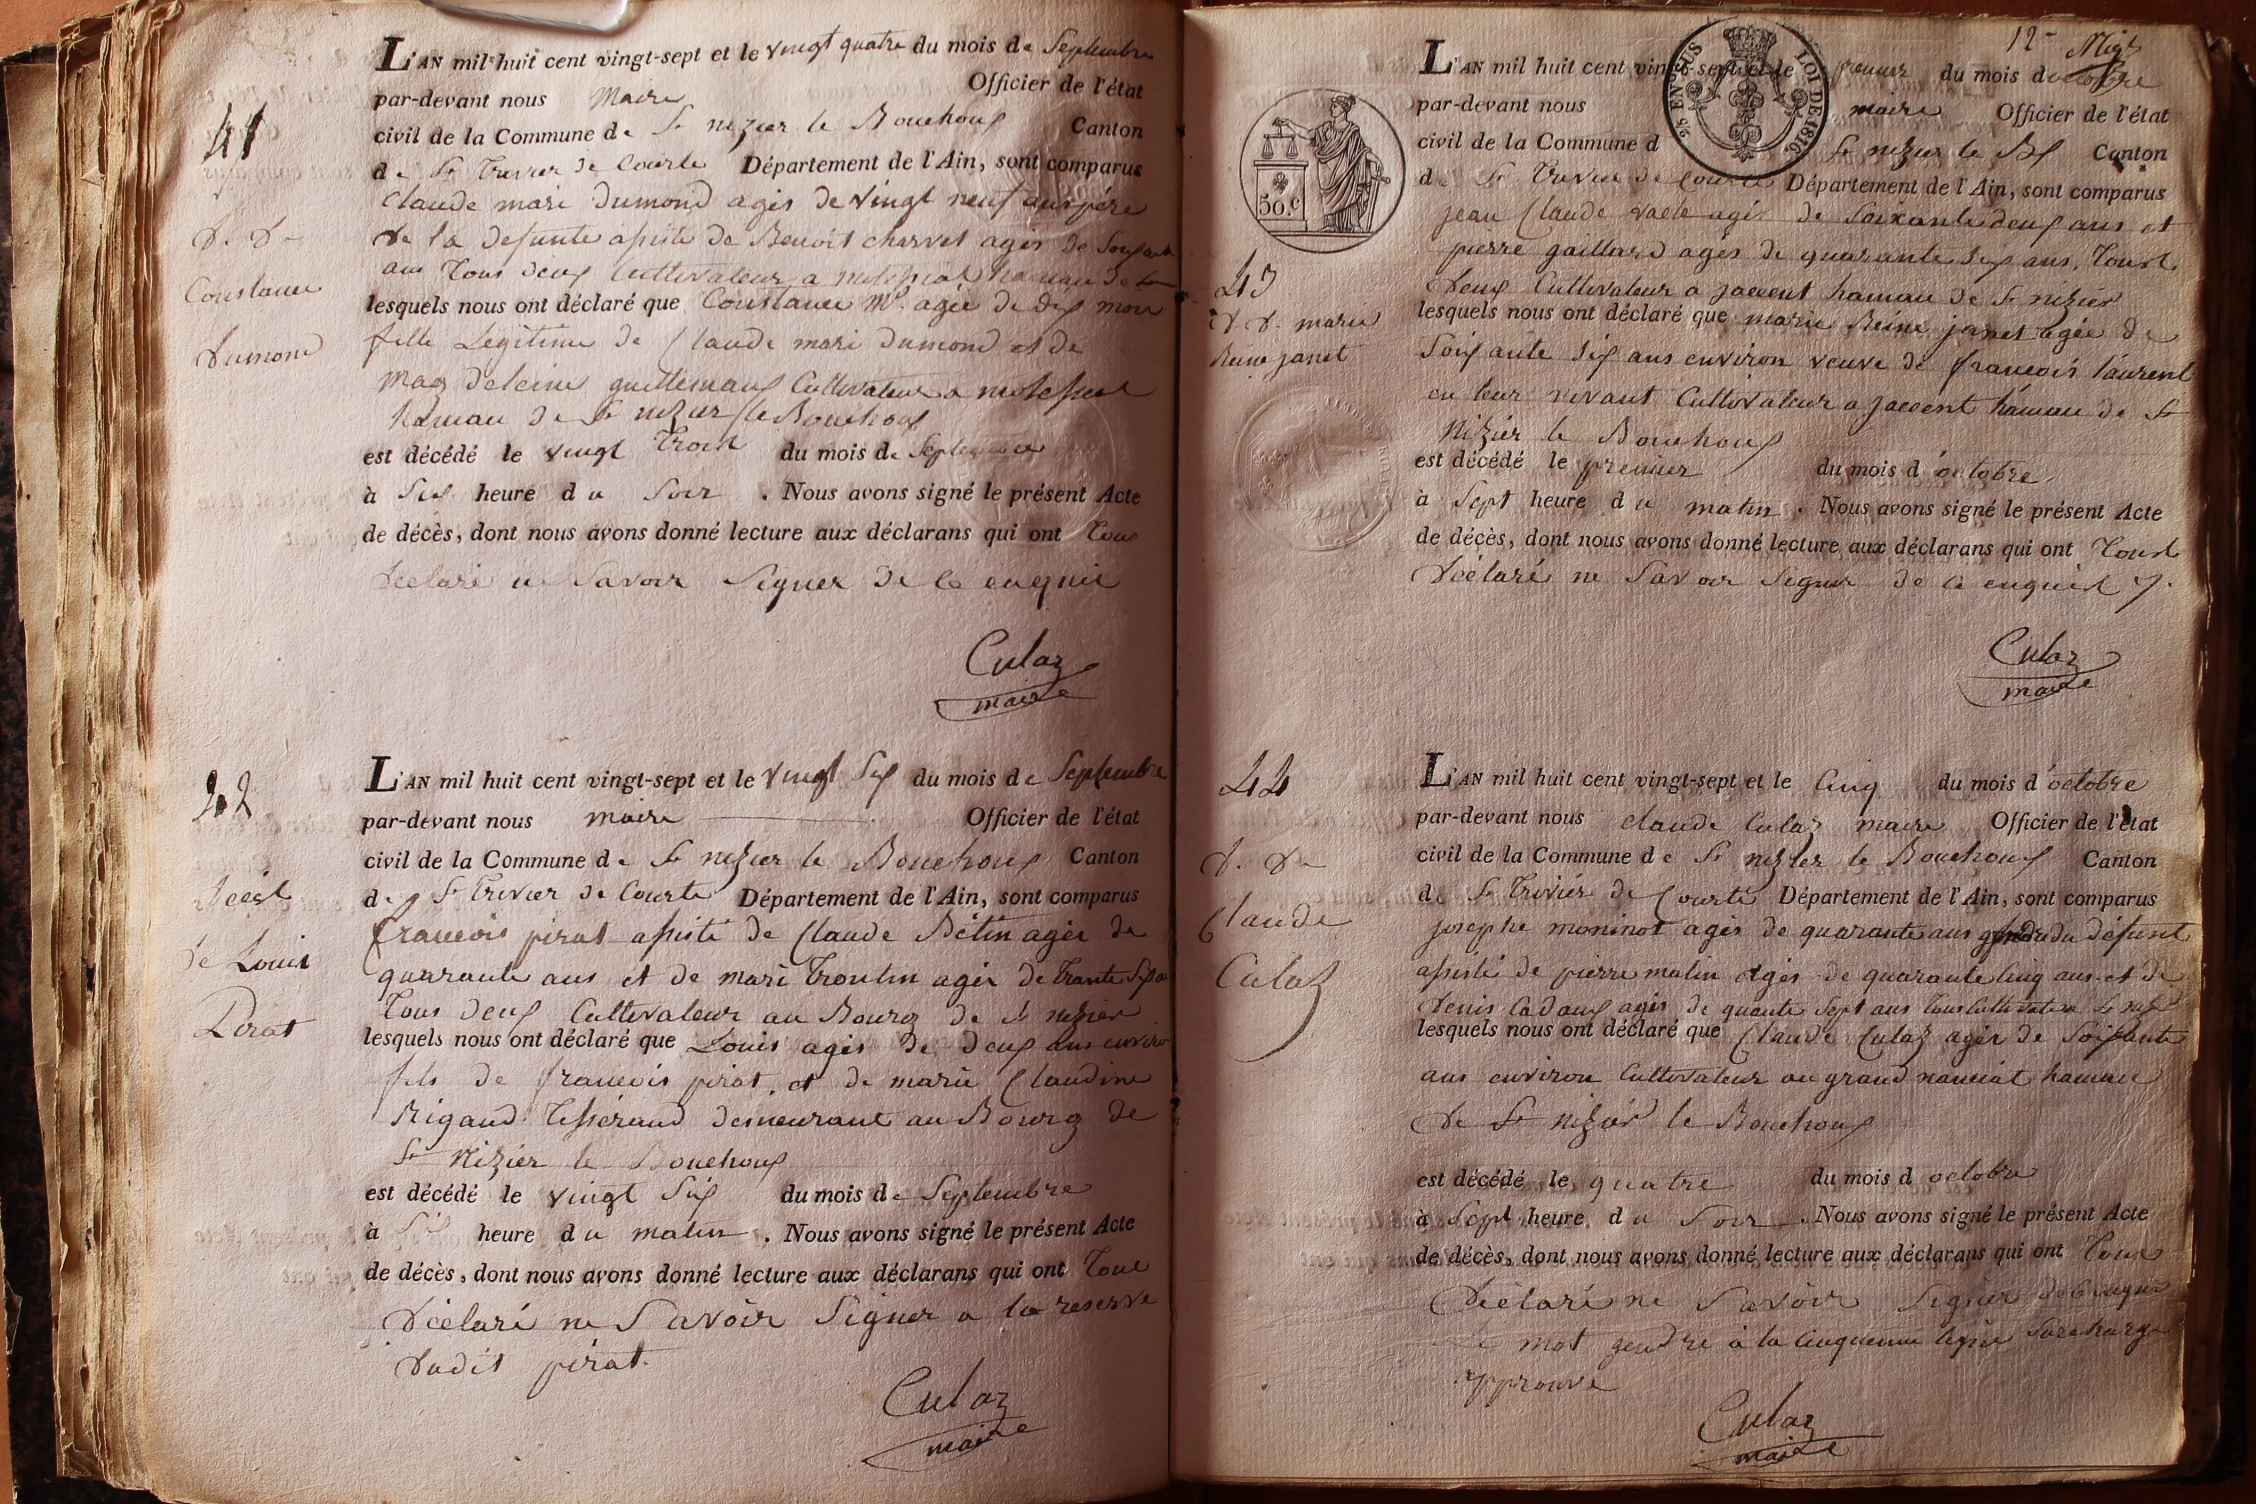 41
D. D-
Constance
Dumond
L'AN mil huit cent vingt-sept et le vingt quatre du mois de Septembre
par-devant nous Maire Officier de l'état
civil de la Commune de St nizier le Bouchoux Canton
de St Trivier de Courte Département de l'Ain, sont comparus
Claude mari Dumond agés de vingt neuf ans père
De la defunte assisté de Benoit charvet agés de Soixante
ans Tous deux Cultivateur a hameau de
lesquels nous ont déclaré que Constance Me. agée de dix mois
fille Légitime de Claude mari Dumond et de
Mag deleine guillemaux Cultivateur a
hameau de St nizier le Bouchoux
est décédé le vingt Troit du mois de Septembre
à Six heure du Soir . Nous avons signé le présent Acte
de décès, dont nous avons donné lecture aux déclarans qui ont Tous
Déclaré ne Savoir Signer de ce enquie
Culaz
maire
42
Décést
de Louis
Pirat
L'AN mil huit cent vingt-sept et le vingt Six du mois de Septembre
par-devant nous maire Officier de l'état
civil de la Commune de St nizier le Bouchoux Canton
de St Trivier de Courte Département de l'Ain, sont comparus
francois pirat assisté de Claude Bétin agés de
quarante ans et de mari Troulin agés de trante
Tous deux Cultivateur au Bourg de St nizier
lesquels nous ont déclaré que Louis agés de deux ans environ
fils de francois pirat et de marie Claudine
Rigaud Tissérand demeurant au Bourg de
St Nizier le Bouchoux
est décédé le vingt Six du mois de Septembre
à Six heure du matin . Nous avons signé le présent Acte
de décès, dont nous avons donné lecture aux déclarans qui ont Tous
Déclaré ne Savoir Signer a la reserve
Dudit pirat.
Culaz
maire
12-
25 EN SUS
LOI DE 1816
50.c
43
D D. marie
Reine janet
L'AN mil huit cent vingt-sept et le premier du mois doctobre
par-devant nous maire Officier de l'état
civil de la Commune d St nizier le Bx Canton
de St Trivier de Courte Département de l'Ain, sont comparus
jean Claude vacle agés de Soixante deux ans et
pierre gaillard agés de quarante Six ans. Tout
Deux Cultivateur a jassent hameau de St nizier
lesquels nous ont déclaré que marie Reine janet agée de
Soixante Six ans environ veuve de francois laurent
en leur vivant Cultivateur a jassent hameau de St
Nizier le Bouchoux
est décédé le premier du mois d'octobre
à Sept heure du matin . Nous avons signé le présent Acte
de décès, dont nous avons donné lecture aux déclarans qui ont Tout
Déclaré ne Savoir Signer de ce enquis
Culaz
maire
44
D. De
Claude
Culaz
L'AN mil huit cent vingt-sept et le Cinq du mois d'octobre
par-devant nous claude Culaz maire Officier de l'état
civil de la Commune de St nizier le Bouchoux Canton
de St Trivier de Courte Département de l'Ain, sont comparus
josephe moninot agés de quarante ans gendre du défunt
assisté de pierre matin agés de quarante Cinq ans et de
Denis Cadoux agés de Sept ans tous Cultivateur
lesquels nous ont déclaré que Claude Culaz agés de Soixante
ans environ Cultivateur au grand hameau
De St nizier le Bouchoux
est décédé le quatre du mois d octobre
à Sept heure du Soir . Nous avons signé le présent Acte
de décès, dont nous avons donné lecture aux déclarans qui ont Tous
Déclaré ne Savoir Signer
Le mot gendre à la Cinquieme ligne Surcharge
Approuvé
Culaz
maire